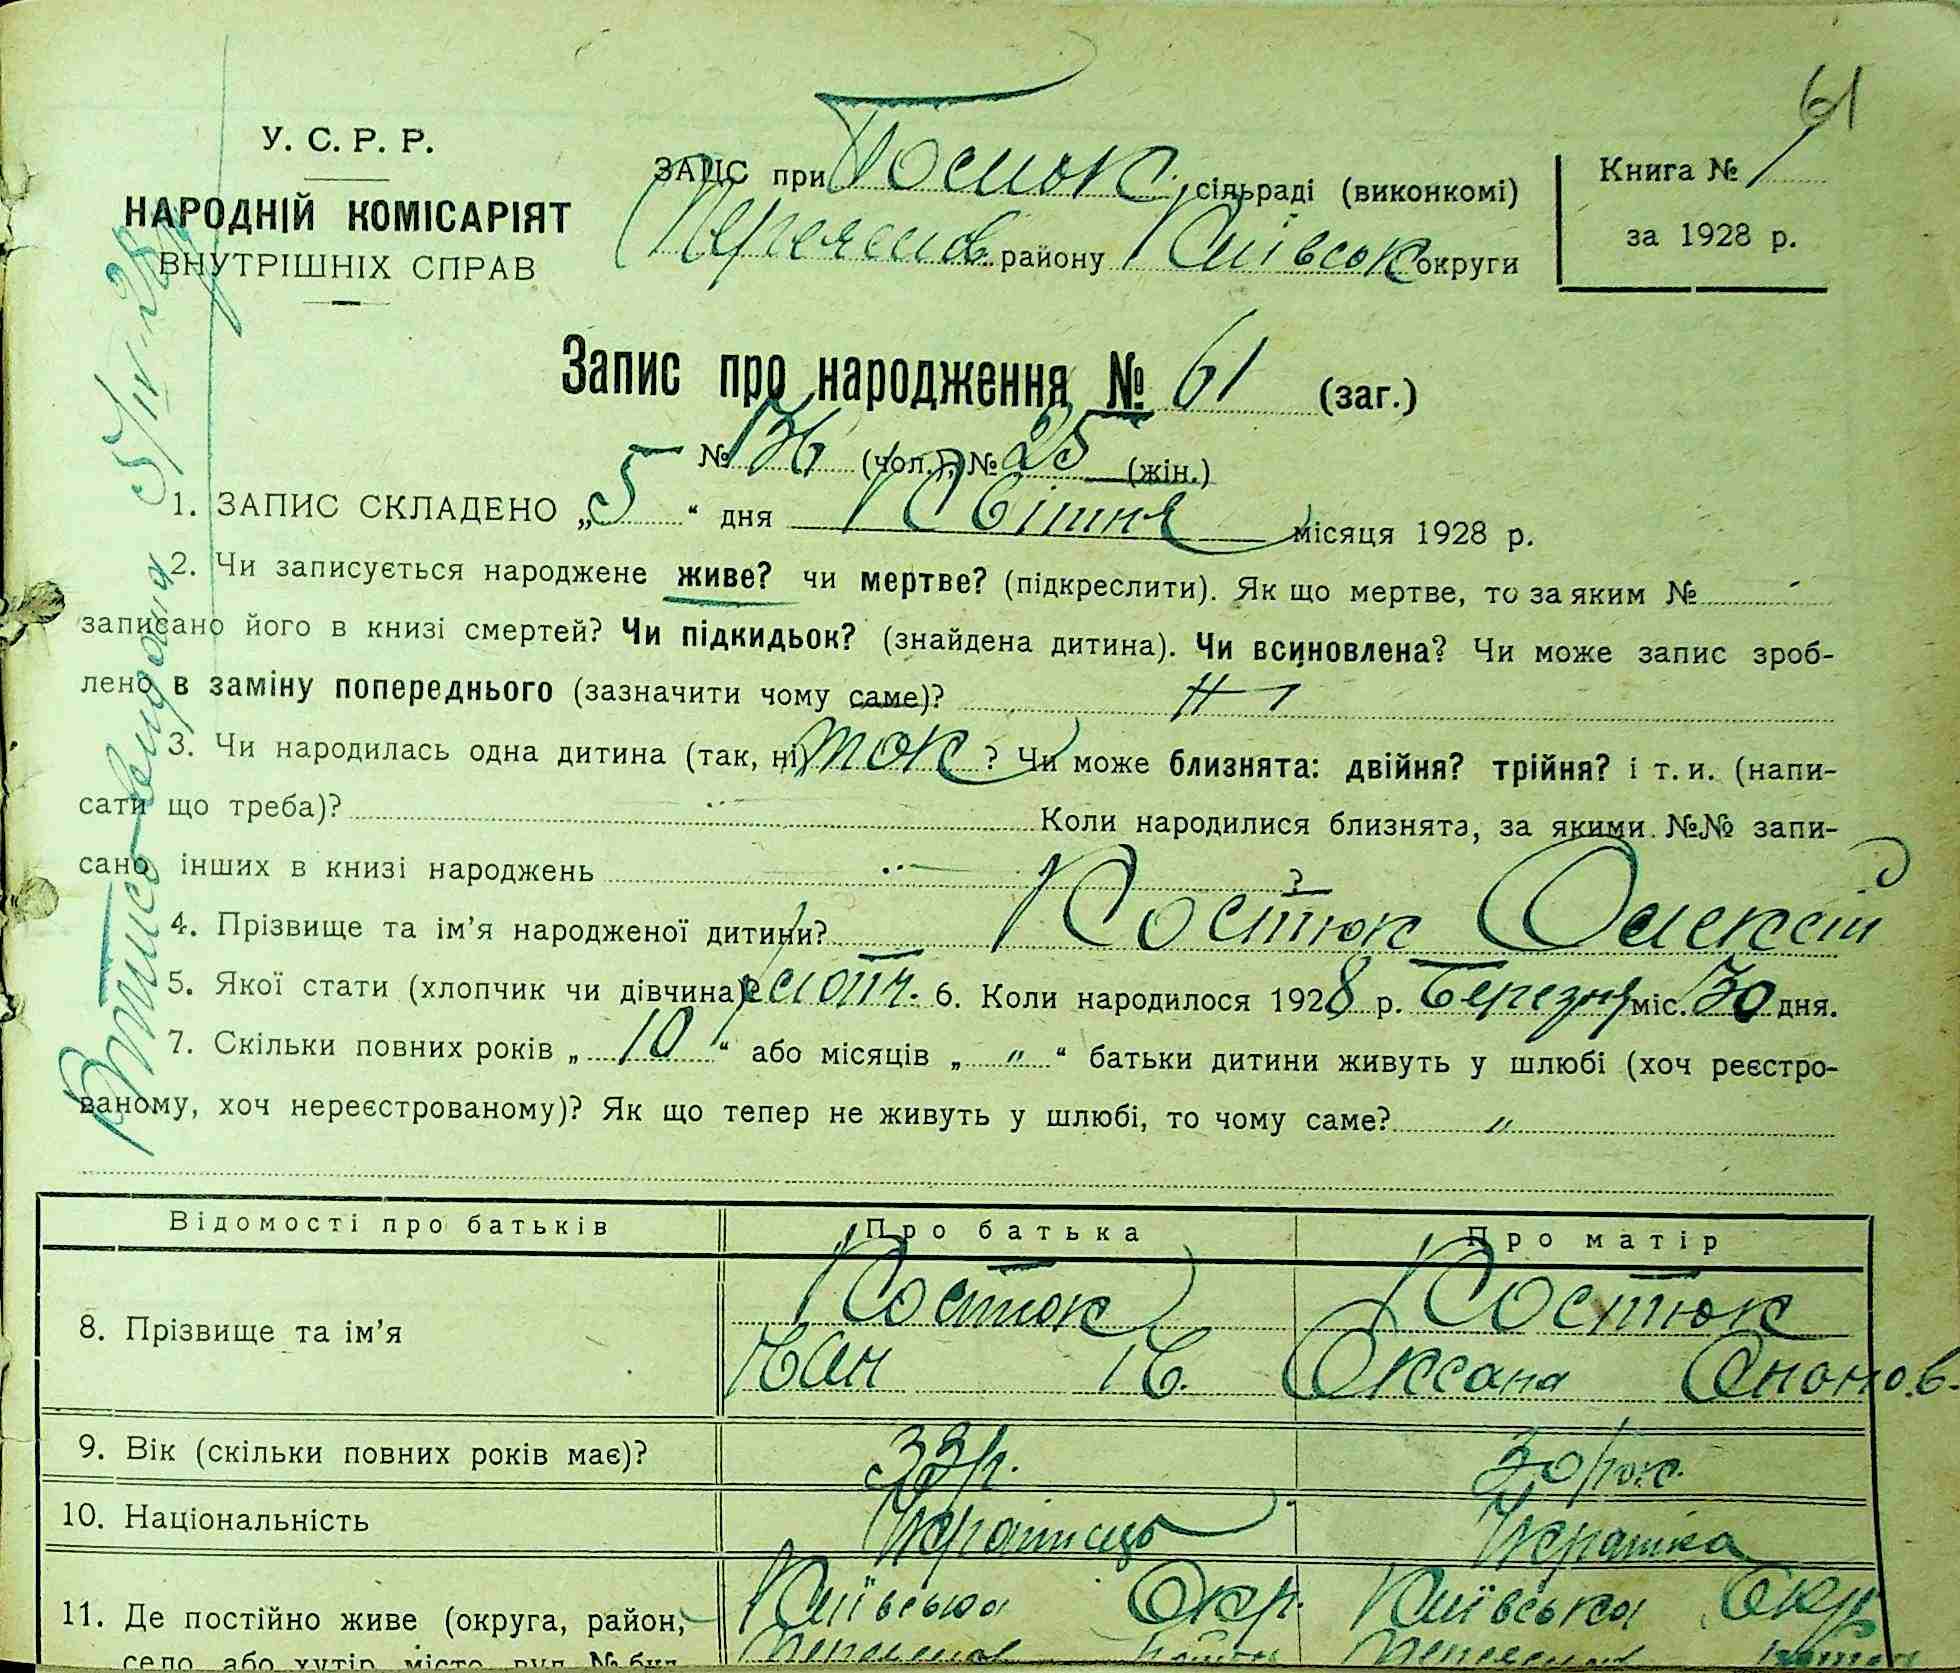 61
У. С. Р. Р.
НАРОДНІЙ КОМІСАРІЯТ
ВНУТРІШНІХ СПРАВ
ЗАГС при сільраді (виконкомі)
Переяслов. району Київськ округи
Книга № 1
за 1928 р.
Запис про народження № 61 (заг.)
№ 36 (чол.), № 25 (жін.)
1. ЗАПИС СКЛАДЕНО „5“ дня Квітня місяця 1928 р.
2. Чи записується народжене живе? чи мертве? (підкреслити). Як що мертве, то за яким №
записано його в книзі смертей? Чи підкидьок? (знайдена дитина). Чи всиновлена? Чи може запис зроб-
лено в заміну попереднього (зазначити чому саме)?
3. Чи народилась одна дитина (так, ні) так ? Чи може близнята: двійня? трійня? і т. и. (напи-
сати що треба)? Коли народилися близнята, за якими №№ запи-
сано інших в книзі народжень ?
4. Прізвище та ім’я народженої дитини? Костюк Олексій
5. Якої стати (хлопчик чи дівчина)? хлопч. 6. Коли народилося 1928 р. Березня міс. 30 дня.
7. Скільки повних років „10“ або місяців „ " “ батьки дитини живуть у шлюбі (хоч реєстро-
ваному, хоч нереєстрованому)? Як що тепер не живуть у шлюбі, то чому саме? "
Відомості про батьків Про батька Про матір
8. Прізвище та ім’я Костюк Костюк
Оксана
9. Вік (скільки повних років має)? 33 р. 30 рок.
10. Національність Українець Українка
11. Де постійно живе (округа, район, Київська Окр. Київська Окр.
село або хутір, місто, вул. № буд. Переяслов район Переяслов район
Витись видана 5/IV-28 р.